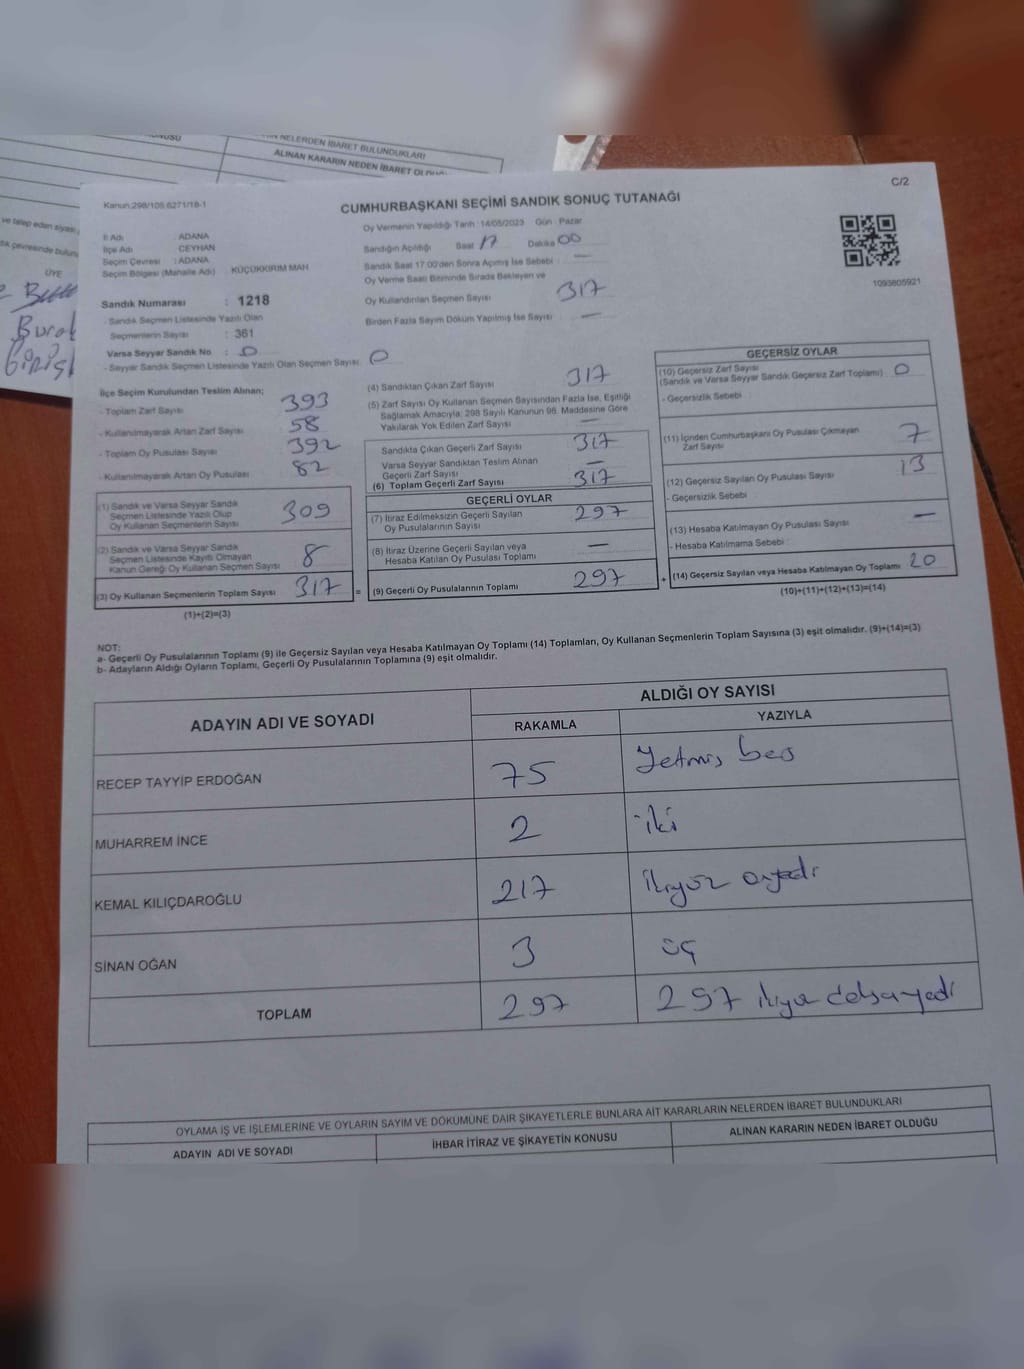 NELERDEN İBARET BULUNDUKLARI
ALINAN KARARIN NEDEN İBARET
ve talep eden siyasi
ÜYE
Burak
C/2
Kanun:298/105.6271/18-1
CUMHURBAŞKANI SEÇİMİ SANDIK SONUÇ TUTANAĞI
İl Adı : ADANA
İlçe Adı : CEYHAN
Seçim Çevresi : ADANA
Seçim Bölgesi (Mahalle Adı) KÜÇÜKKIRIM MAH
Sandık Numarası : 1218
- Sandık Seçmen Listesinde Yazılı Olan
Seçmenlerin Sayısı : 361
Varsa Seyyar Sandık No : 0
- Seyyar Sandık Seçmen Listesinde Yazılı Olan Seçmen Sayısı : 0
Oy Vermenin Yapıldığı Tarih :14/05/2023 Gün : Pazar
Sandığın Açıldığı Saat 17 Dakika 00
Sandık Saat 17.00'den Sonra Açılmış İse Sebebi : —
Oy Verme Saati Bitiminde Sırada Bekleyen ve
Oy Kullandırılan Seçmen Sayısı 317
Birden Fazla Sayım Döküm Yapılmış İse Sayısı —
1093805921
İlçe Seçim Kurulundan Teslim Alınan;
- Toplam Zarf Sayısı 393
- Kullanılmayarak Artan Zarf Sayısı 58
- Toplam Oy Pusulası Sayısı 392
- Kullanılmayarak Artan Oy Pusulası 82
(1) Sandık ve Varsa Seyyar Sandık
Seçmen Listesinde Yazılı Olup
Oy Kullanan Seçmenlerin Sayısı 309
(2) Sandık ve Varsa Seyyar Sandık
Seçmen Listesinde Kayıtlı Olmayan
Kanun Gereği Oy Kullanan Seçmen Sayısı 8
(3) Oy Kullanan Seçmenlerin Toplam Sayısı 317
(1)+(2)=(3)
(4) Sandıktan Çıkan Zarf Sayısı 317
(5) Zarf Sayısı Oy Kullanan Seçmen Sayısından Fazla İse, Eşitliği
Sağlamak Amacıyla; 298 Sayılı Kanunun 98. Maddesine Göre
Yakılarak Yok Edilen Zarf Sayısı —
Sandıkta Çıkan Geçerli Zarf Sayısı 317
Varsa Seyyar Sandıktan Teslim Alınan
Geçerli Zarf Sayısı
(6) Toplam Geçerli Zarf Sayısı 317
GEÇERLİ OYLAR
(7) İtiraz Edilmeksizin Geçerli Sayılan
Oy Pusulalarının Sayısı 297
(8) İtiraz Üzerine Geçerli Sayılan veya
Hesaba Katılan Oy Pusulası Toplamı —
= (9) Geçerli Oy Pusulalarının Toplamı 297 +
GEÇERSİZ OYLAR
(10) Geçersiz Zarf Sayısı
(Sandık ve Varsa Seyyar Sandık Geçersiz Zarf Toplamı) 0
- Geçersizlik Sebebi :
(11) İçinden Cumhurbaşkanı Oy Pusulası Çıkmayan
Zarf Sayısı 7
(12) Geçersiz Sayılan Oy Pusulası Sayısı 13
- Geçersizlik Sebebi
(13) Hesaba Katılmayan Oy Pusulası Sayısı —
- Hesaba Katılmama Sebebi :
(14) Geçersiz Sayılan veya Hesaba Katılmayan Oy Toplamı 20
(10)+(11)+(12)+(13)=(14)
NOT:
a- Geçerli Oy Pusulalarının Toplamı (9) ile Geçersiz Sayılan veya Hesaba Katılmayan Oy Toplamı (14) Toplamları, Oy Kullanan Seçmenlerin Toplam Sayısına (3) eşit olmalıdır. (9)+(14)=(3)
b- Adayların Aldığı Oyların Toplamı, Geçerli Oy Pusulalarının Toplamına (9) eşit olmalıdır.
ADAYIN ADI VE SOYADI ALDIĞI OY SAYISI
RAKAMLA YAZIYLA
RECEP TAYYİP ERDOĞAN 75 Yetmiş beş
MUHARREM İNCE 2 iki
KEMAL KILIÇDAROĞLU 217 ikiyüz onyedi
SİNAN OĞAN 3 üç
TOPLAM 297 297
OYLAMA İŞ VE İŞLEMLERİNE VE OYLARIN SAYIM VE DÖKÜMÜNE DAİR ŞİKAYETLERLE BUNLARA AİT KARARLARIN NELERDEN İBARET BULUNDUKLARI
ADAYIN ADI VE SOYADI İHBAR İTİRAZ VE ŞİKAYETİN KONUSU ALINAN KARARIN NEDEN İBARET OLDUĞU